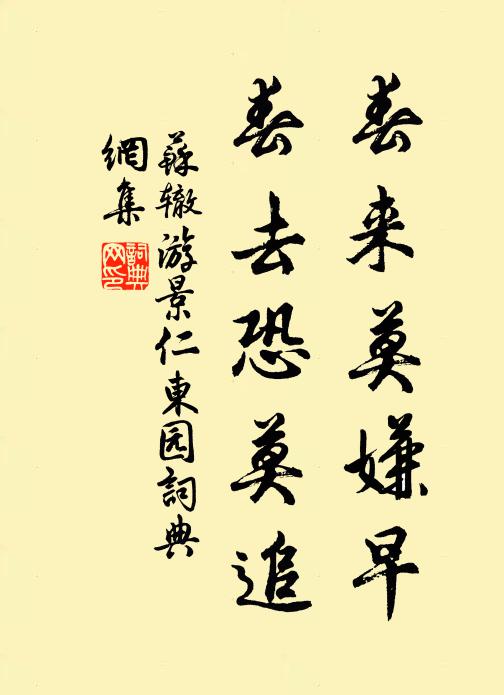 春来莫嫌早
春去恐莫追
蘇辙游景仁東园詞典
網集
詞典网印